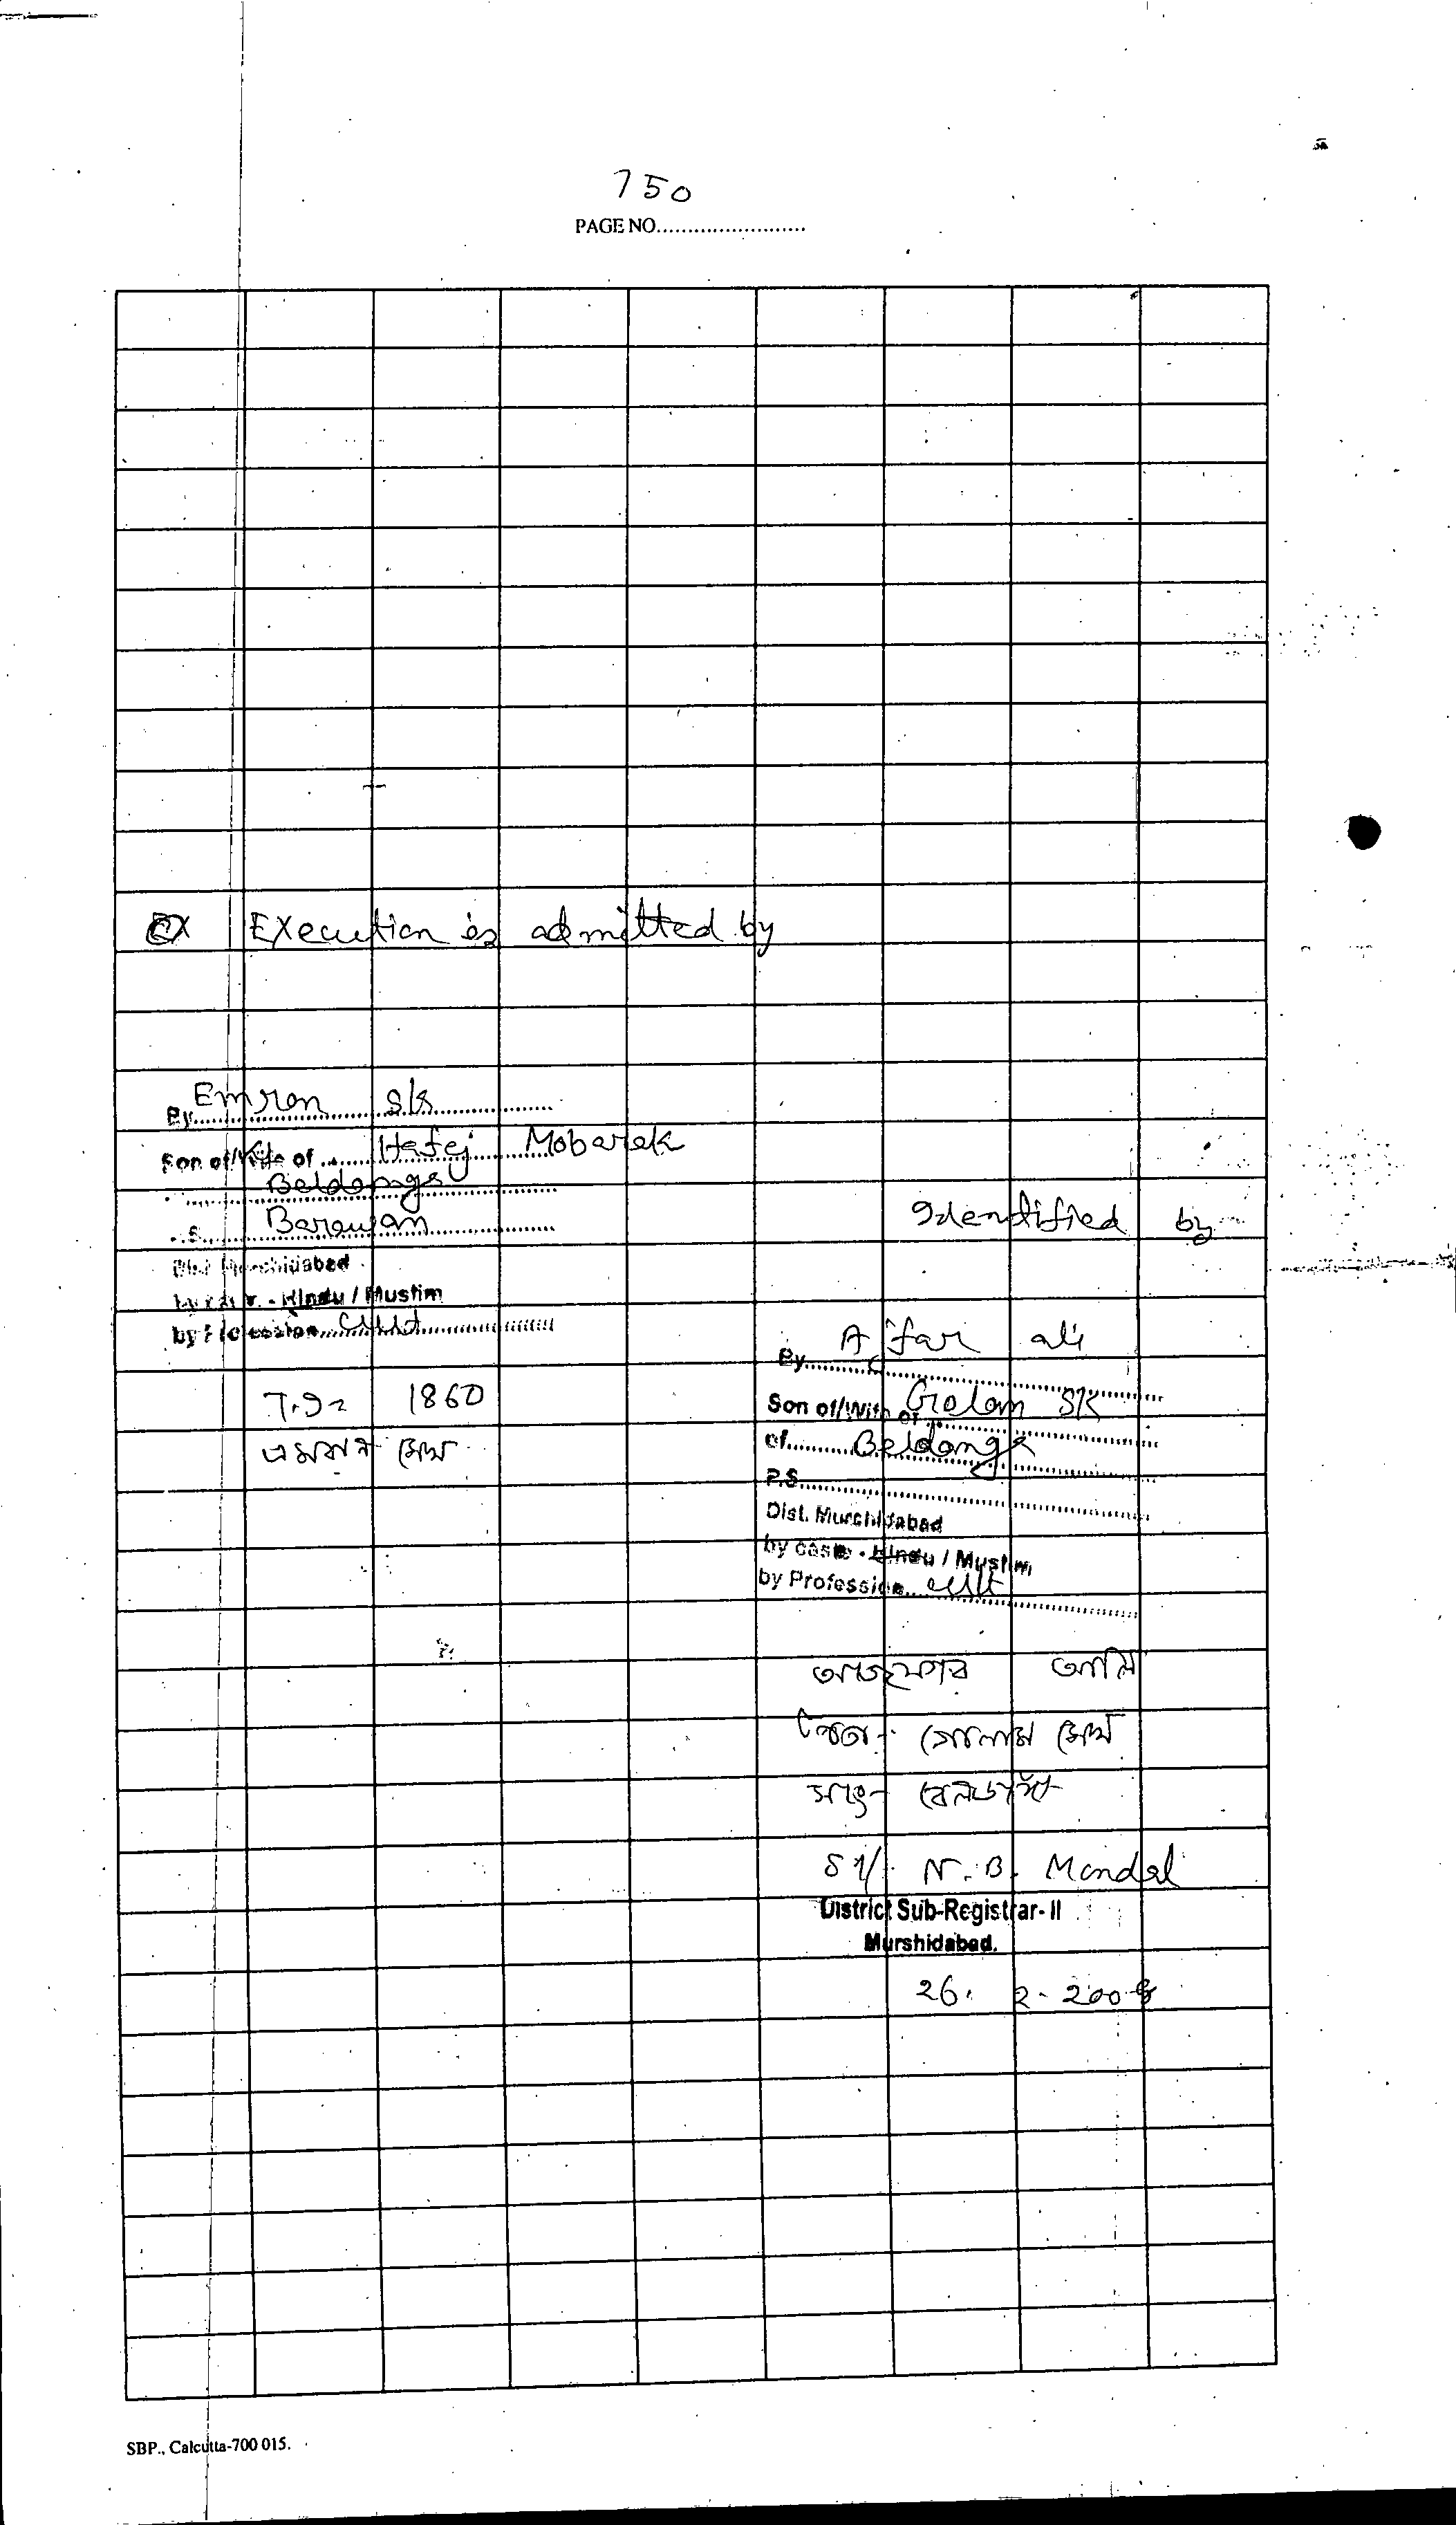 750
PAGE NO.........................
EX Execution is admitted by
By Emron Sk
Son of/Wife of Hafej Mobarak
Beldanga
Barawan
Dist Murshidabad
by caste - Hindu / Muslim
by Profession
1860
এমরান সেখ
Identified by
By Ajfar ali
Son of/Wife of Golam Sk
of Beldanga
P.S.
Dist. Murshidabad
by caste - Hindu / Muslim
by Profession
আজফার আলি
পিতা- গোলাম সেখ
সাং- বেলডাঙ্গা
Sd/ N. B. Mondal
District Sub-Registrar- II
Murshidabad.
26. 2. 2008
SBP., Calcutta-700 015.